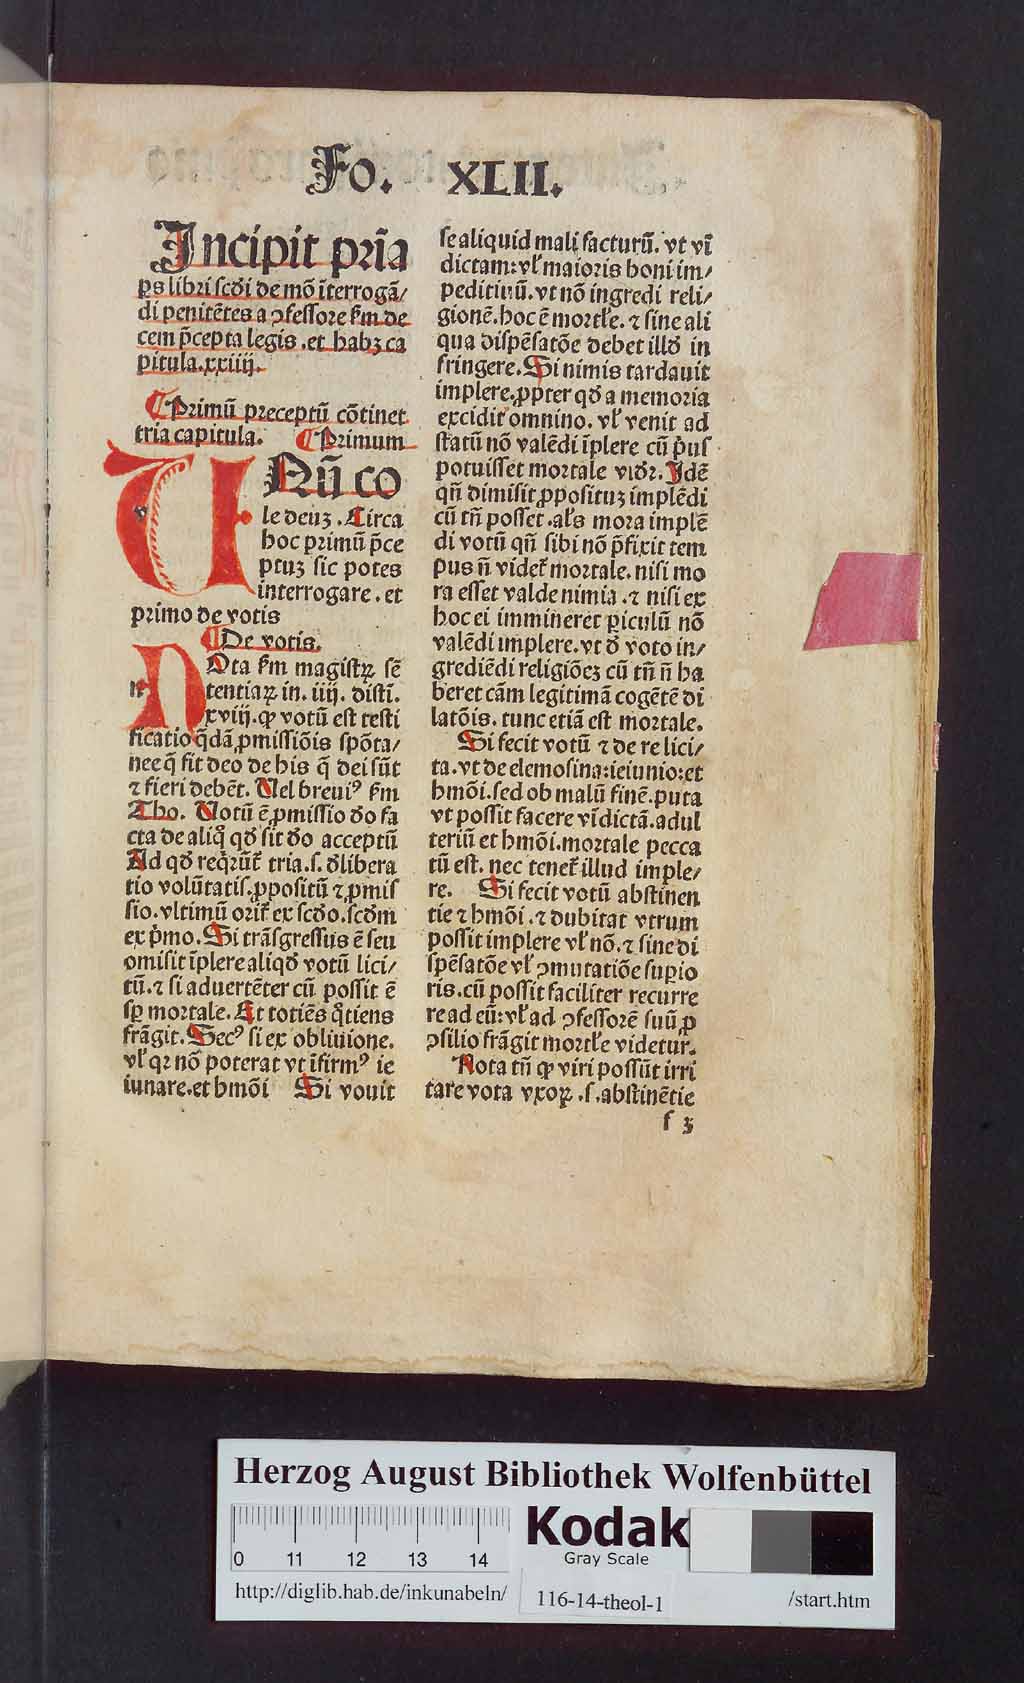 Fo. XLII.
Incipit pria̅
ps libri scd̅i de mo̅ i̅terroga̅/
di penite̅tes a ꝯfessore k̅m de
cem p̅cepta legis .et habꝫ ca
pitula.xxiiij.
¶Primu̅ preceptu̅ co̅tinet
tria capitula. ¶Primum
UNu̅ co
le deuꝫ .Circa
hoc primu̅ p̅ce
ptuꝫ sic potes
interrogare .et
primo de votis
¶De votis.
NOta k̅m magistꝝ se̅
tentiaꝝ in. iiij. disti.
xxviij.ꝙ votu̅ est testi
ficatio q̅da̅ ꝓmissio̅is spo̅ta/
nee q̅ fit deo de his q̅ dei su̅t
⁊ fieri debe̅t. Uel breuiꝰ k̅m
Tho. Uotu̅ e̅ ꝓmissio do̅ fa
cta de aliq̊ qd̅ sit do̅ acceptu̅
Ad qd̅ reqͥru̅t᷑ tria.s. d̅libera
tio volu̅tatis.ꝓpositu̅ ⁊ ꝓmis
sio.vltimu̅ orit᷑ ex scd̅o.scd̅m
ex pͥmo.Si tra̅sgressus e̅ seu
omisit i̅plere aliqd̅ votu̅ lici/
tu̅.⁊ si aduerte̅ter cu̅ possit e̅
sꝑ mortale. Et totie̅s q̊tiens
fra̅git.Secꝰ si ex obliuione.
vl̅ qꝛ no̅ poterat vt i̅firmꝰ ie
iunare.et hmo̅i Si vouit
se aliquid mali facturu̅. vt vi̅
dictam:vl̅ maioris boni im/
peditiuu̅.vt no̅ ingredi reli/
gione̅.hoc e̅ mortl̅e.⁊ sine ali
qua dispe̅sato̅e debet illd̅ in
fringere.Si nimis tardauit
implere.ꝓpter qd̅ a memoria
excidit omnino. vl̅ venit ad
statu̅ no̅ vale̅di i̅plere cu̅ pͥus
potuisset mortale vid̅r.Ide̅
qn̅ dimisit ꝓposituꝫ imple̅di
cu̅ tn̅ posset .al̅s mora imple̅
di votu̅ qn̅ sibi no̅ p̅fixit tem
pus n̅ videt᷑ mortale. nisi mo
ra esset valde nimia .⁊ nisi ex
hoc ei immineret ꝑiculu̅ no̅
vale̅di implere.vt d̅ voto in/
gredie̅di religio̅eꝫ cu̅ tn̅ n̅ ha
beret ca̅m legitima̅ coge̅te̅ di
lato̅is. tunc etia̅ est mortale.
Si fecit votu̅ ⁊ de re lici/
ta.vt de elemosina:ieiunio:et
hmo̅i.sed ob malu̅ fine̅.puta
vt possit facere vi̅dicta̅.adul
teriu̅ et hmo̅i.mortale pecca
tu̅ est. nec tenet᷑ illud imple/
re. Si fecit votu̅ abstinen
tie ⁊ hmo̅i .⁊ dubitat vtrum
possit implere vl̅ no̅.⁊ sine di
spe̅sato̅e vl̅ ꝯmutatio̅e suꝑio
ris.cu̅ possit faciliter recurre
re ad eu̅:vl̅ ad ꝯfessore̅ suu̅ ꝓ
ꝯsilio fra̅git mortl̅e videtur.
Nota tn̅ ꝙ viri possu̅t irri
tare vota vxoꝝ .s.abstine̅tie
f 3
Herzog August Bibliothek Wolfenbüttel
0 11 12 13 14
Kodak
Gray Scale
http://diglib.hab.de/inkunabeln/ 116-14-theol-1 /start.htm